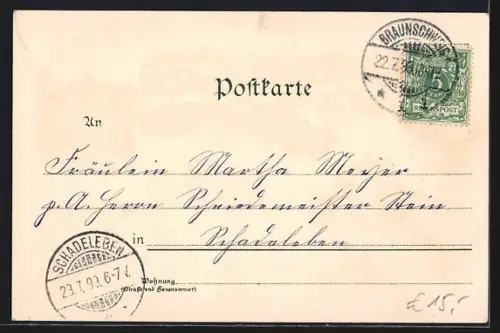 BRAUNSCHWEIG
22.7.99.
5
REICHSPOST
Postkarte
An
Fräulein Martha Meyer
p. A. Herrn Schmiedemeister Stein
in
Schadeleben
SCHADELEBEN
23.7.99.6-7V.
Wohnung
(Straße und Hausnummer)
£ 15,-